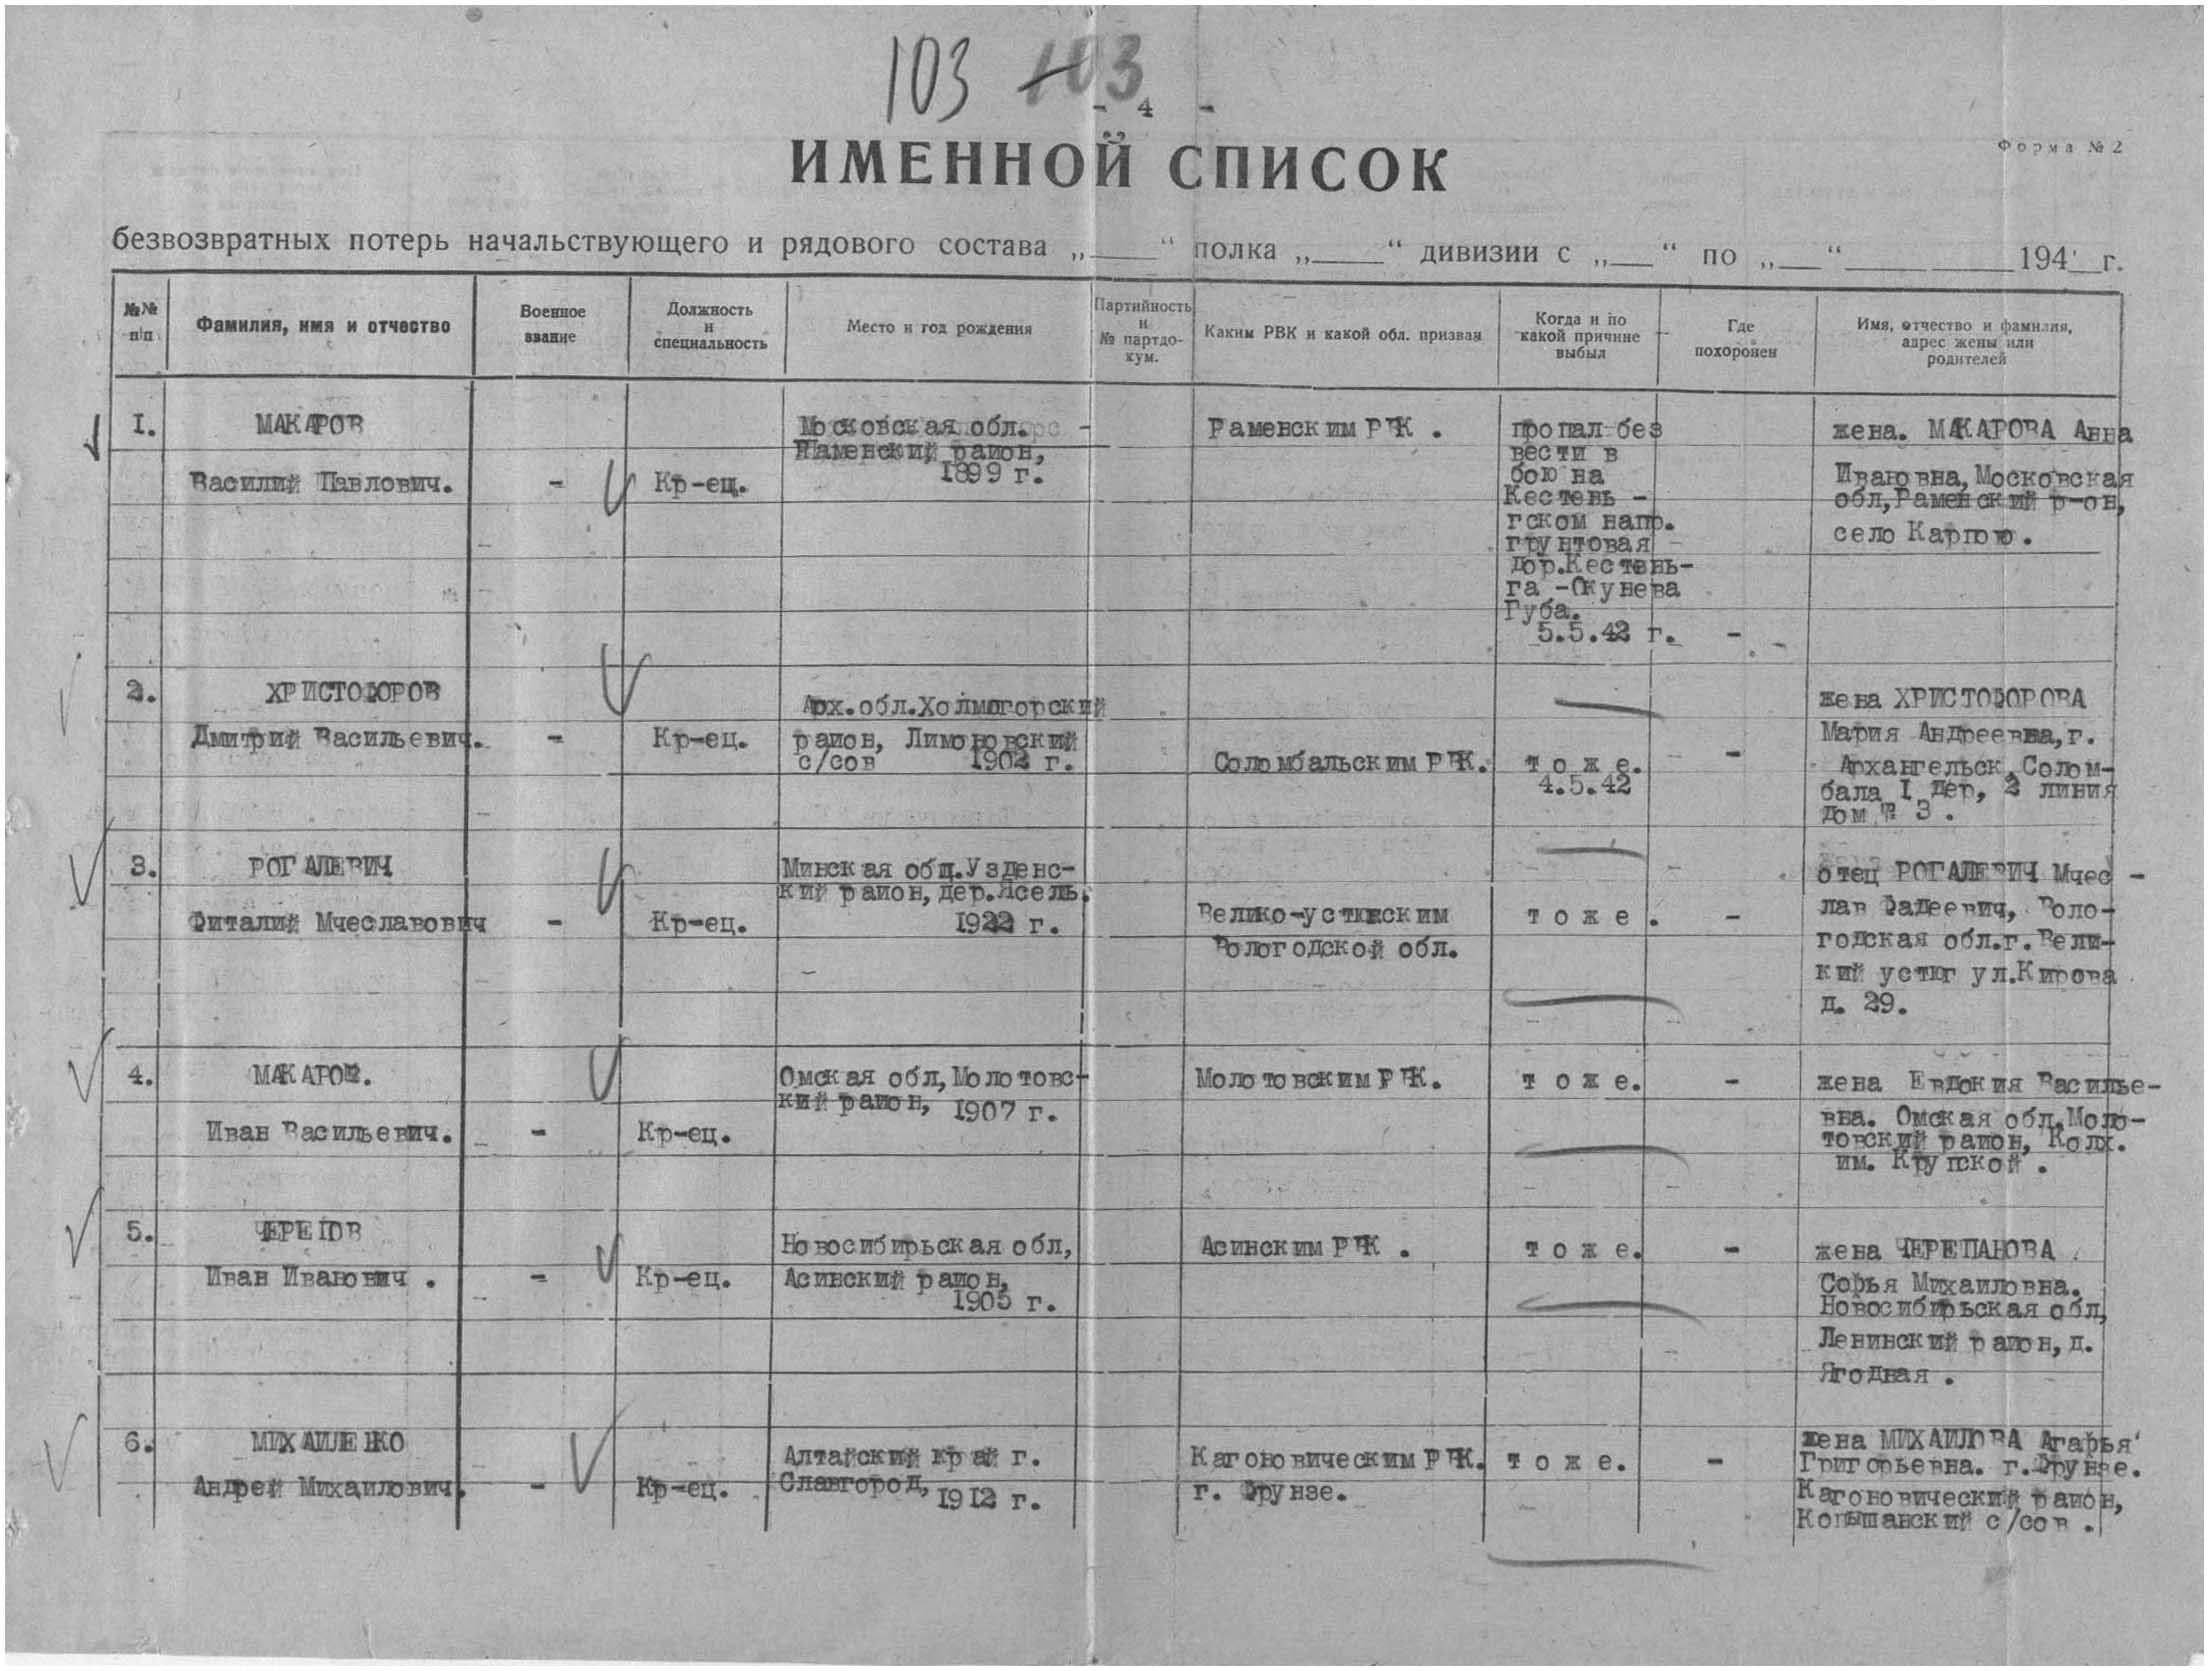 103 103
- 4 -
Форма № 2
ИМЕННОЙ СПИСОК
безвозвратных потерь начальствующего и рядового состава „____“ полка „____“ дивизии с „__“ по „__“ ________ 194__г.
№№ п/п
Фамилия, имя и отчество
Военное звание
Должность и специальность
Место и год рождения
Партийность и № партдокум.
Каким РВК и какой обл. призван
Когда и по какой причине выбыл
Где похоронен
Имя, отчество и фамилия, адрес жены или родителей
I.
МАКАРОВ
Василий Павлович.
-
Кр-ец.
Московская обл.
Раменский район,
1899 г.
Раменским РВК .
пропал без
вести в
бою на
Кестень -
гском напр.
грунтовая
дор.Кестень-
га -Окунева
Губа.
5.5.42 г.
-
жена. МАКАРОВА Анна
Ивановна, Московская
обл,Раменский р-он,
село Карпово.
2.
ХРИСТОФОРОВ
Дмитрий Васильевич.
-
Кр-ец.
Арх.обл.Холмогорский
район, Лимоновский
с/сов 1902 г.
Соломбальским РВК.
т о ж е.
4.5.42
-
жена ХРИСТОФОРОВА
Мария Андреевна,г.
Архангельск,Солом-
бала I дер, 2 линия
дом № 3 .
3.
РОГАЛЕВИЧ
Фиталий Мчеславович
-
Кр-ец.
Минская общ.Узденс-
кий район,дер.Ясель.
1922 г.
Велико-устюнским
Вологодской обл.
т о ж е .
-
отец РОГАЛЕВИЧ Мчес -
лав Фадеевич, Воло-
годская обл.г.Вели-
кий устюг ул.Кирова
д. 29.
4.
МАКАРОВ.
Иван Васильевич.
-
Кр-ец.
Омская обл,Молотовс-
кий район, 1907 г.
Молотовским РВК.
т о ж е.
-
жена Евдокия Василье-
вна. Омская обл,Моло-
товский район, Колх.
им. Крупской .
5.
ЧЕРЕПОВ
Иван Иванович .
-
Кр-ец.
Новосибирьская обл,
Асинский район,
1905 г.
Асинским РВК .
т о ж е.
-
жена ЧЕРЕПАНОВА
Софья Михаиловна.
Новосибирьская обл,
Ленинский район,д.
Ягодная .
6.
МИХАИЛЕНКО
Андрей Михаилович.
-
Кр-ец.
Алтайский край г.
Славгород,
1912 г.
Кагоновическим РВК.
г. Фрунзе.
т о ж е.
-
жена МИХАИЛОВА Агафья
Григорьевна. г.Фрунзе.
Кагоновический район,
Копышанский с/сов .